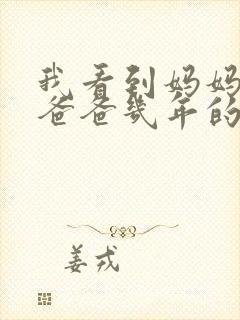 我看到妈妈
爸爸几年的
姜戎